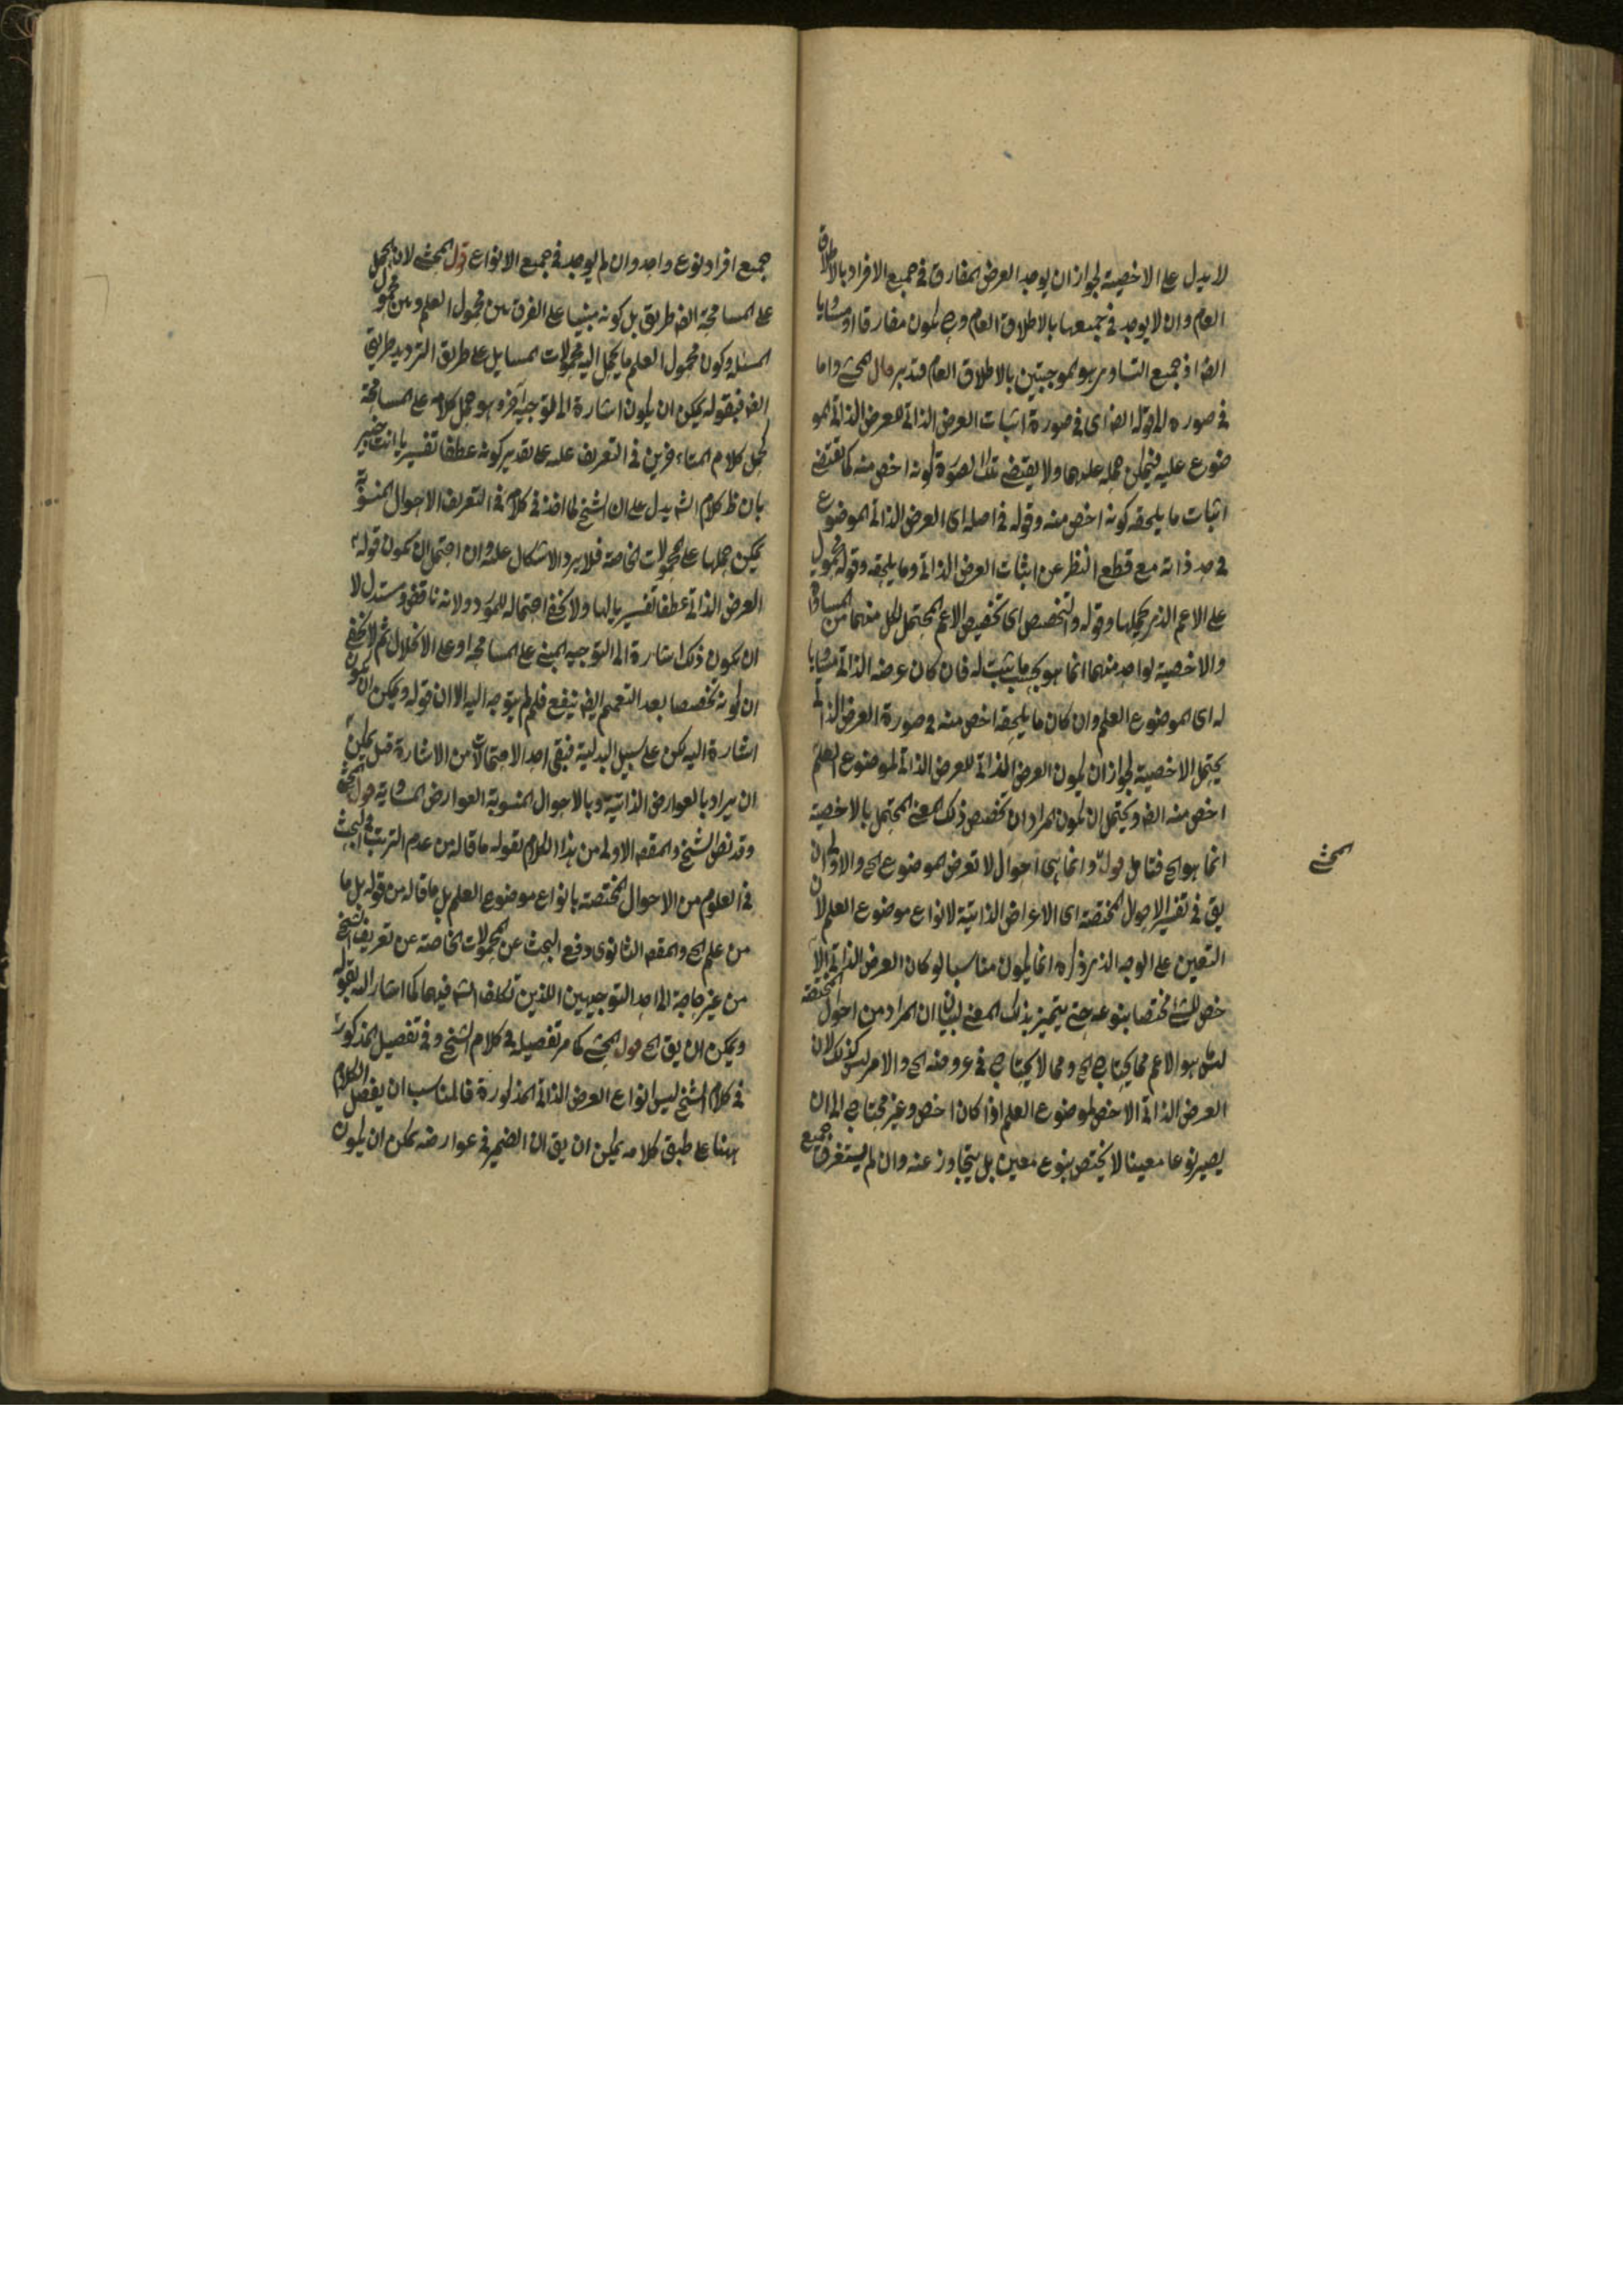 لا يدل على الاخصية لجواز ان يوجد العرض المفارق في جميع الافراد بالاطلاق
العام وان لا يوجد في جميعها بالاطلاق العام وح يكون مفارقا او مساويا
ايضا اذ جميع التساوى هو الموجبتين بالاطلاق العام فتدبر قال المحشى واما
في صورة الى قوله ايضا اى في صورة اثبات العرض الذاتى للعرض الذاتى المو
ضوع عليه فيمكن حمله عليها ولا يقتضى تلك الصورة كونه اخص منه كما يقتضى
اثبات ما يلحقه كونه اخص منه وقوله في اصله اى العرض الذاتى الموضوع
في حد ذاته مع قطع النظر عن اثبات العرض الذاتى وما يلحقه وقوله المحمول
على الاعم الذى يحملها وقوله والتخصص اى تخصيص الاعم المحتمل لكل منهما من المساواة
والاخصية لواحد منهما انما هو بحسب ما يثبت له فان كان عرضه الذاتى مساويا
له اى الموضوع العلم وان كان ما يلحقه اخص منه وصورة العرض الذاتى
يحتمل الاخصية لجواز ان يكون العرض الذاتى للعرض الذاتى لموضوع العلم
اخص منه ايضا ويحتمل ان يكون المراد ان تخصص ذلك المعنى المحتمل بالاخصية
انما هو الخ فتامل قوله وانما هى احوال لا تعرض الموضوع الخ والاولى ان
يق في تفسير الاحوال المختصة اى الاعراض الذاتية لانواع موضوع العلم لان
التعين على الوجه الذى ذكره انما يكون مناسبا لو كان العرض الذاتى الا
خص للشئ مختصا بنوعه حتى يتميز بذلك المعنى لبيان ان المراد من احوال المختصة
ليس هو الاعم مما يحتاج الخ ومما لا يحتاج في عروضه الخ والامر ليس كذلك لان
العرض الذاتى الاخص لموضوع العلم اذا كان اخص وغير محتاج الى ان
يصير نوعا معينا لا يختص بنوع معين بل يتجاوز عنه وان لم يستغرق جميع
المحشى
جميع افراد نوع واحد وان لم يوجد في جميع الانواع قول المحشى لان الحمل
على المسامحة ايضا طريق بل كونه مبنيا على الفرق بين محمول العلم وبين محمول
المسئلة وكون محمول العلم ما يحمل اليه محمولات المسايل على طريق الترديد طريق
ايضا فبقوله يمكن ان يكون اشارة الى توجيه آخر وهو حمل كلامه على المسامحة
كحمل كلام المتاخرين في التعريف عليه على تقدير كونه عطفا تفسيريا انت خبير
بان ظ كلام الشه يدل على ان الشيخ لما اخذ في كلامه في التعريف الاحوال المنسوبة
يمكن حملها على المحمولات الخاصة فلا يرد الاشكال عليه وان احتمل ان يكون قوله
العرض الذاتى عطفا تفسيريا لها ولا يخفى احتماله للمورد ولانه ناقض ومستدل لا
ان يكون ذلك اشارة الى التوجيه المبنى على المسامحة او على الاخلال ثم لا يخفى
ان كونه تخصيصا بعد التعميم ايضا ينفع فلم لم يتوجه اليه الا ان قوله ويمكن ان يكون
اشارة اليه لكن على سبيل البدلية فبقى احد الاحتمالات من الاشارة قيل يمكن
ان يراد بالعوارض الذاتية وبالاحوال المنسوبة العوارض المساوية قول المحشى
وقد نص الشيخ والمقصد الاولى من هذا الكلام بقوله ما قاله من عدم الترتب في البحث
في العلوم من الاحوال المختصة بانواع موضوع العلم بل ما قاله من قوله بل ما
من علم الخ والمقصد الثانوى دفع البحث عن المحمولات الخاصة عن تعريف الشيخ
من غير حاجة الى احد التوجيهين اللذين تكلف الشه فيهما كما اشار اليه بقوله
ويمكن ان يق الخ قول المحشى كما مر تفصيله في كلام الشيخ وفي تفصيل المذكور
في كلام الشيخ ليس انواع العرض الذاتى المذكورة فالمناسب ان يفصل الكلام
ههنا على طبق كلامه يمكن ان يق ان الضمير في عوارضه يمكن ان يكون